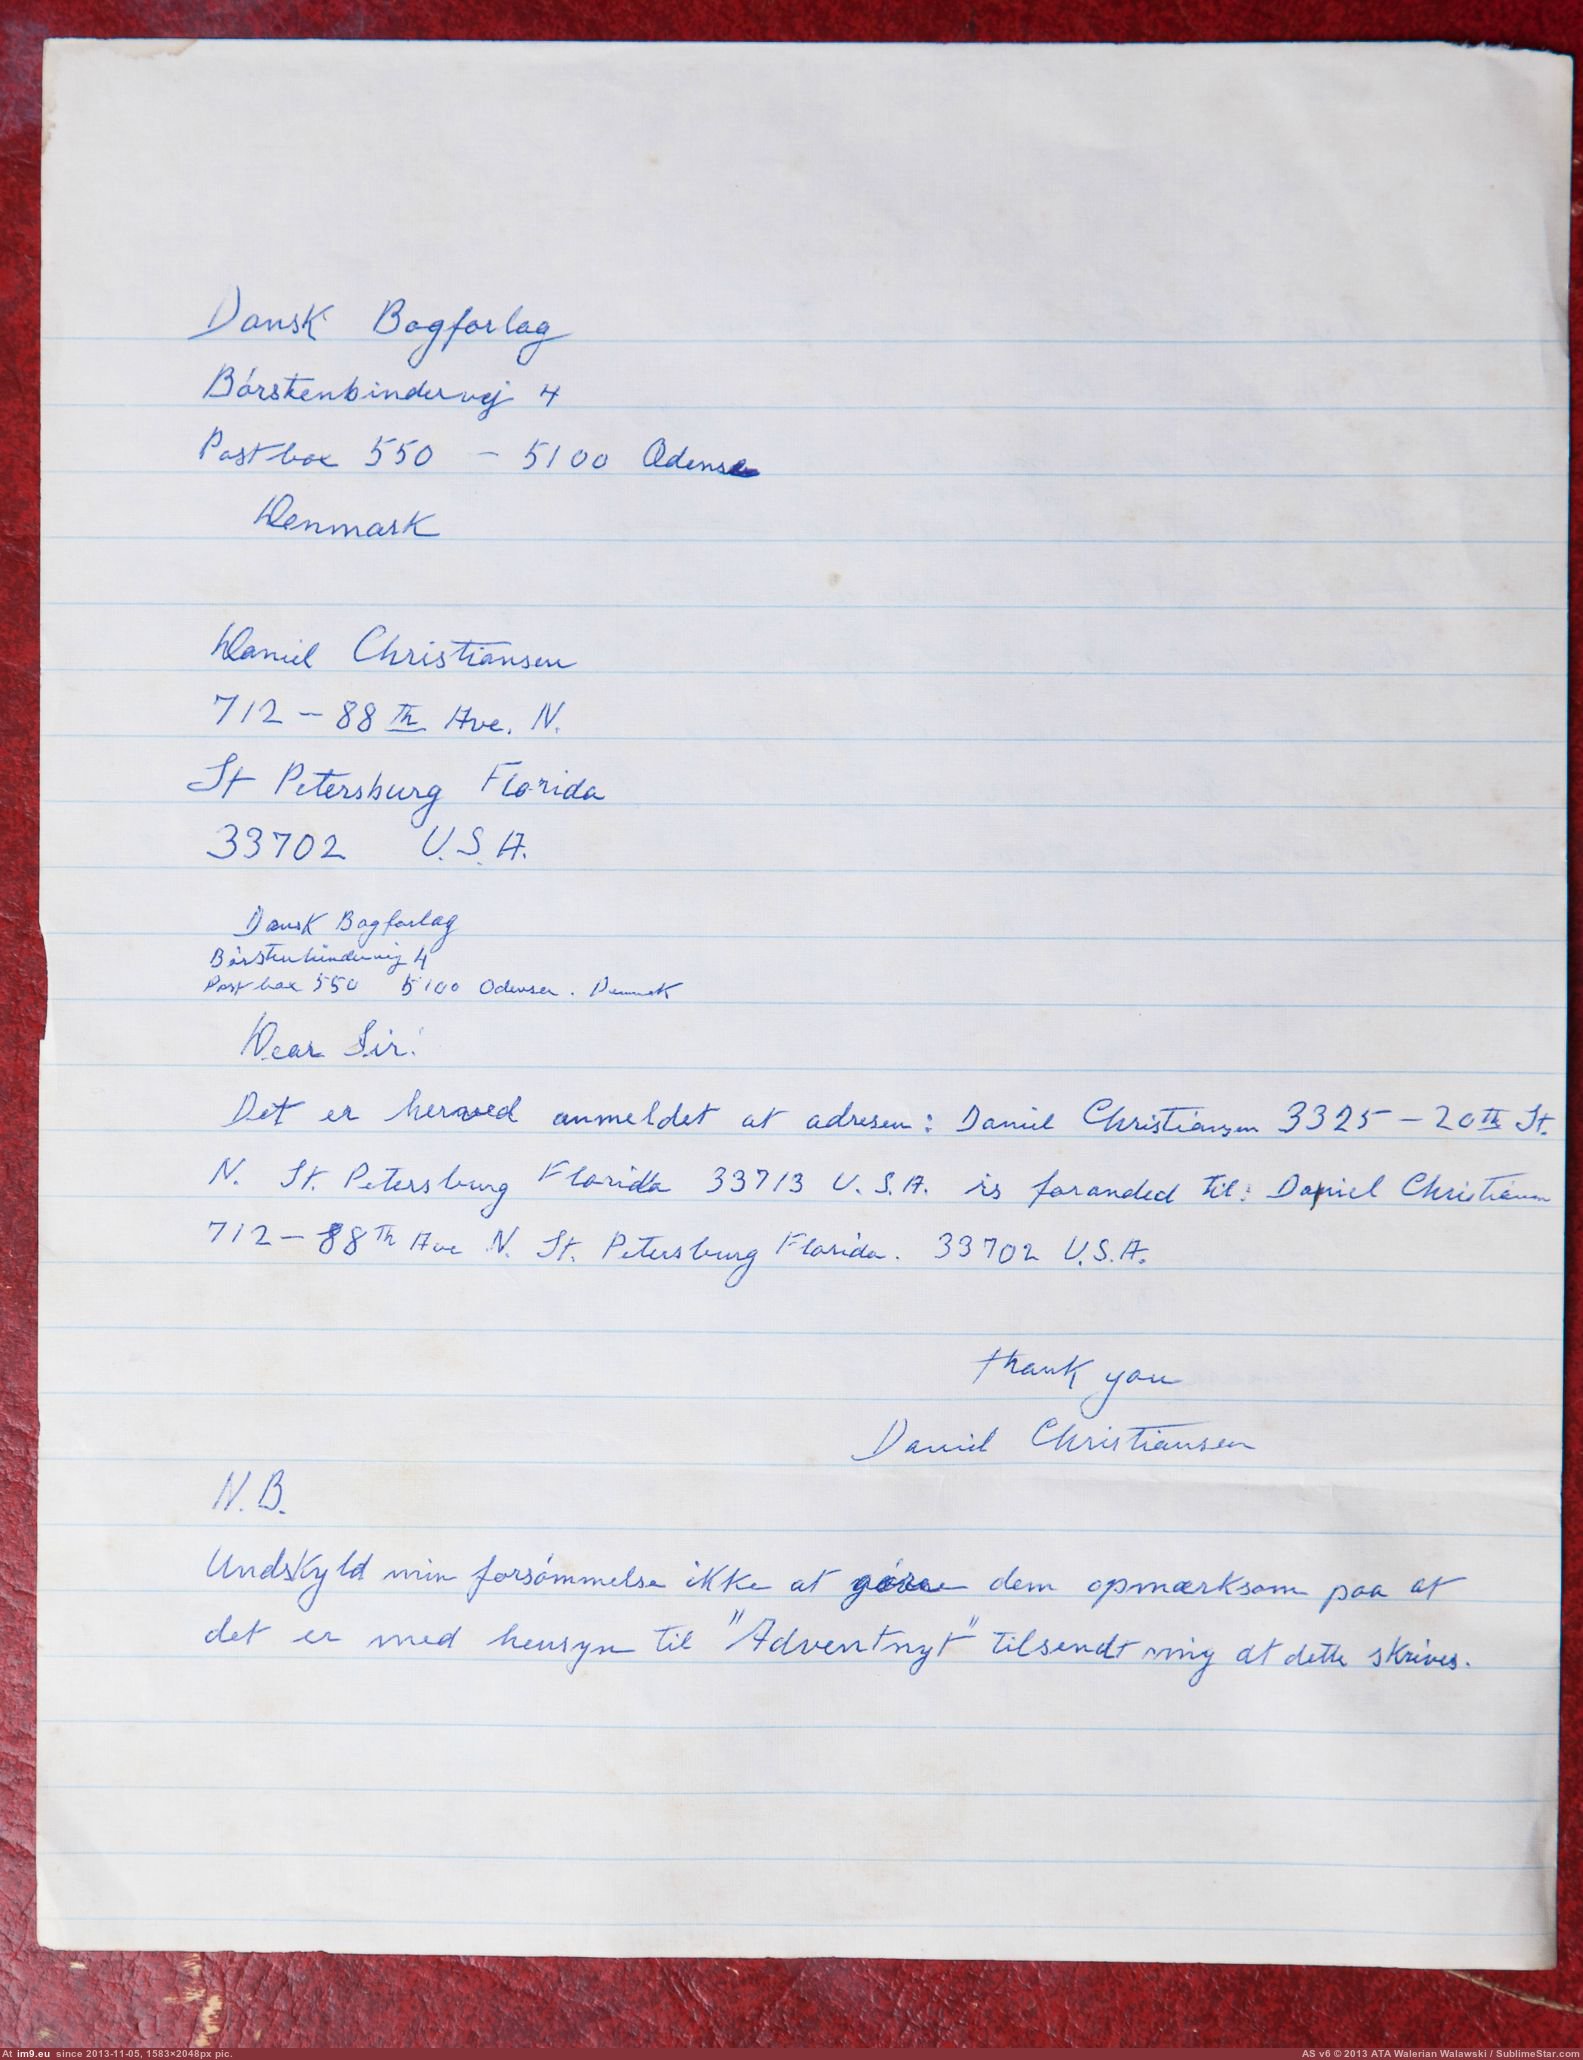 Dansk Bogforlag
Börstenbindervej 4
Postbox 550 - 5100 Odense
Denmark
Daniel Christiansen
712 - 88 th Ave. N.
St Petersburg Florida
33702 U.S.A.
Dansk Bogforlag
Börstenbindervej 4
Postbox 550 5100 Odense. Denmark
Dear Sir!
Det er herved anmeldet at adresen: Daniel Christiansen 3325 - 20th St.
N. St. Petersburg Florida 33713 U.S.A. is foranded til: Daniel Christiansen
712 - 88 Th Ave N. St. Petersburg Florida. 33702 U.S.A.
thank you
Daniel Christiansen
N.B.
Undskyld min forsömmelse ikke at göre dem opmærksom paa at
det er med hensyn til "Adventnyt" tilsendt mig at dette skrives.
At im9.eu since 2013-11-05, 1583×2048px pic.
AS v6 © 2013 ATA Walerian Walawski / SublimeStar.com